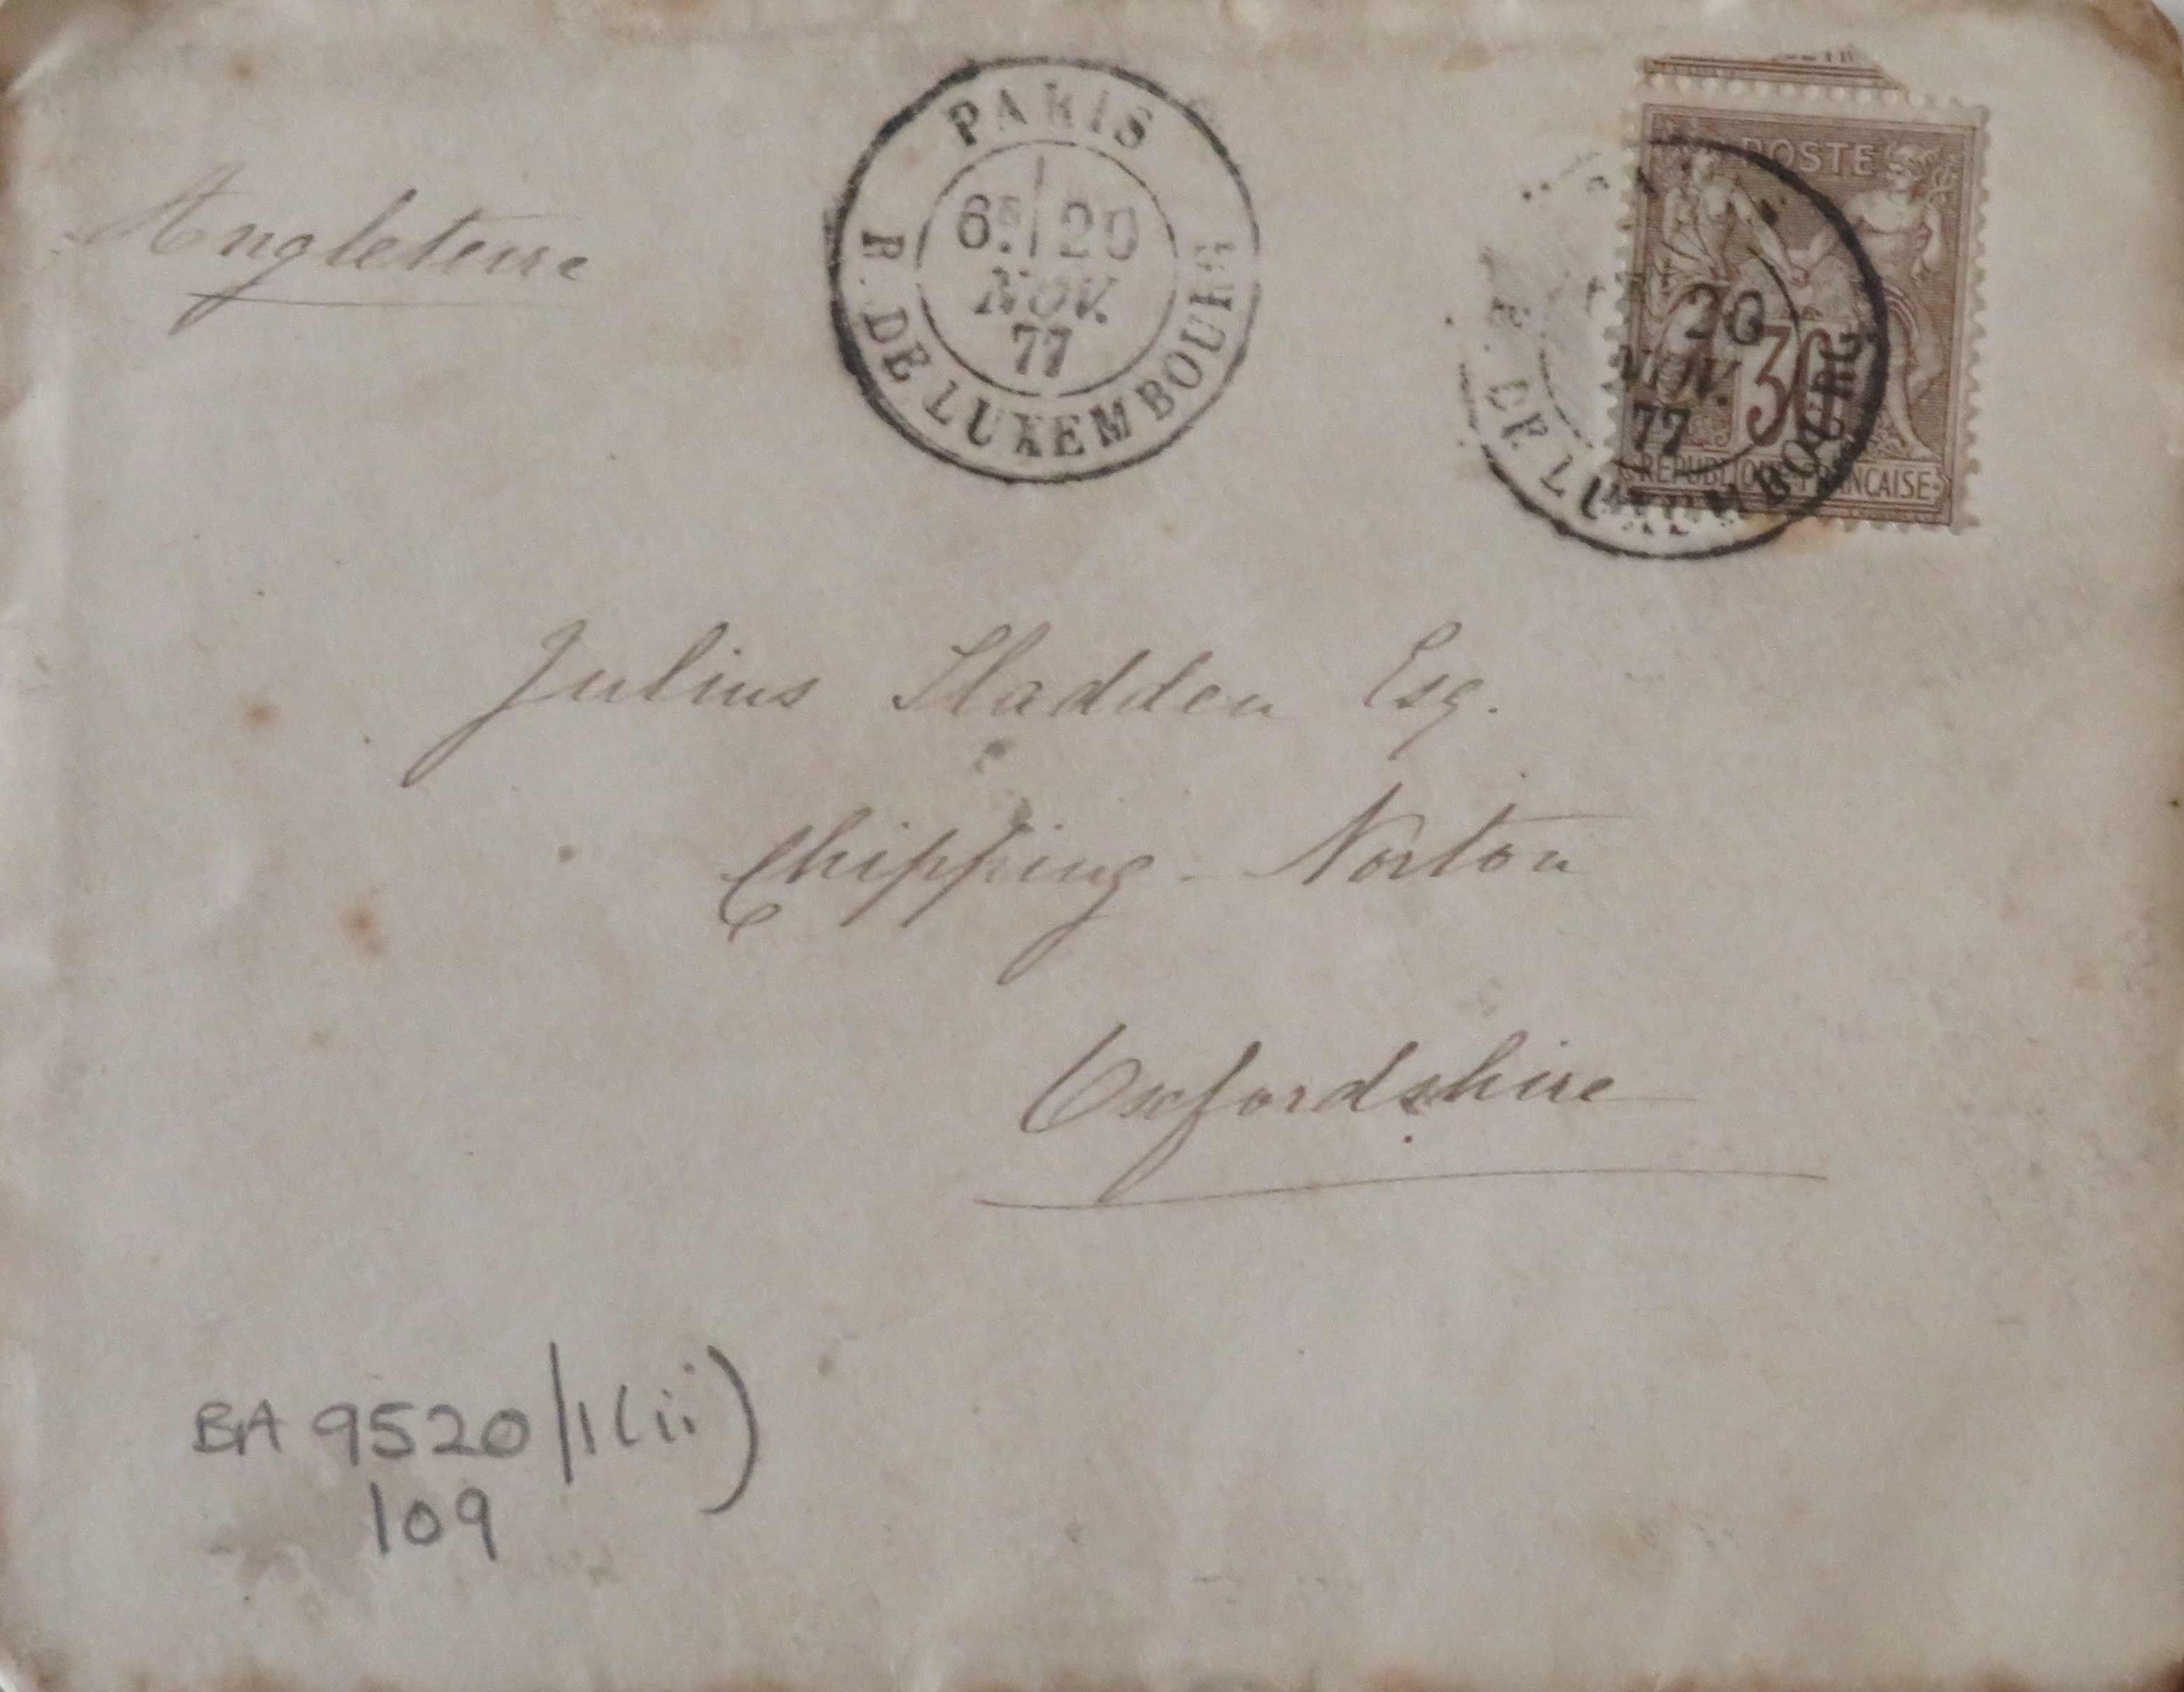 Angleterre
PARIS
6E 20
NOV.
77
R. DE LUXEMBOURG
POSTE
20
NOV.
77
30
R. DE LUXEMBOURG
REPUBLIQUE FRANCAISE
Julius Sladden Esq.
Chipping-Norton
Oxfordshire
BA 9520/1(ii)
109